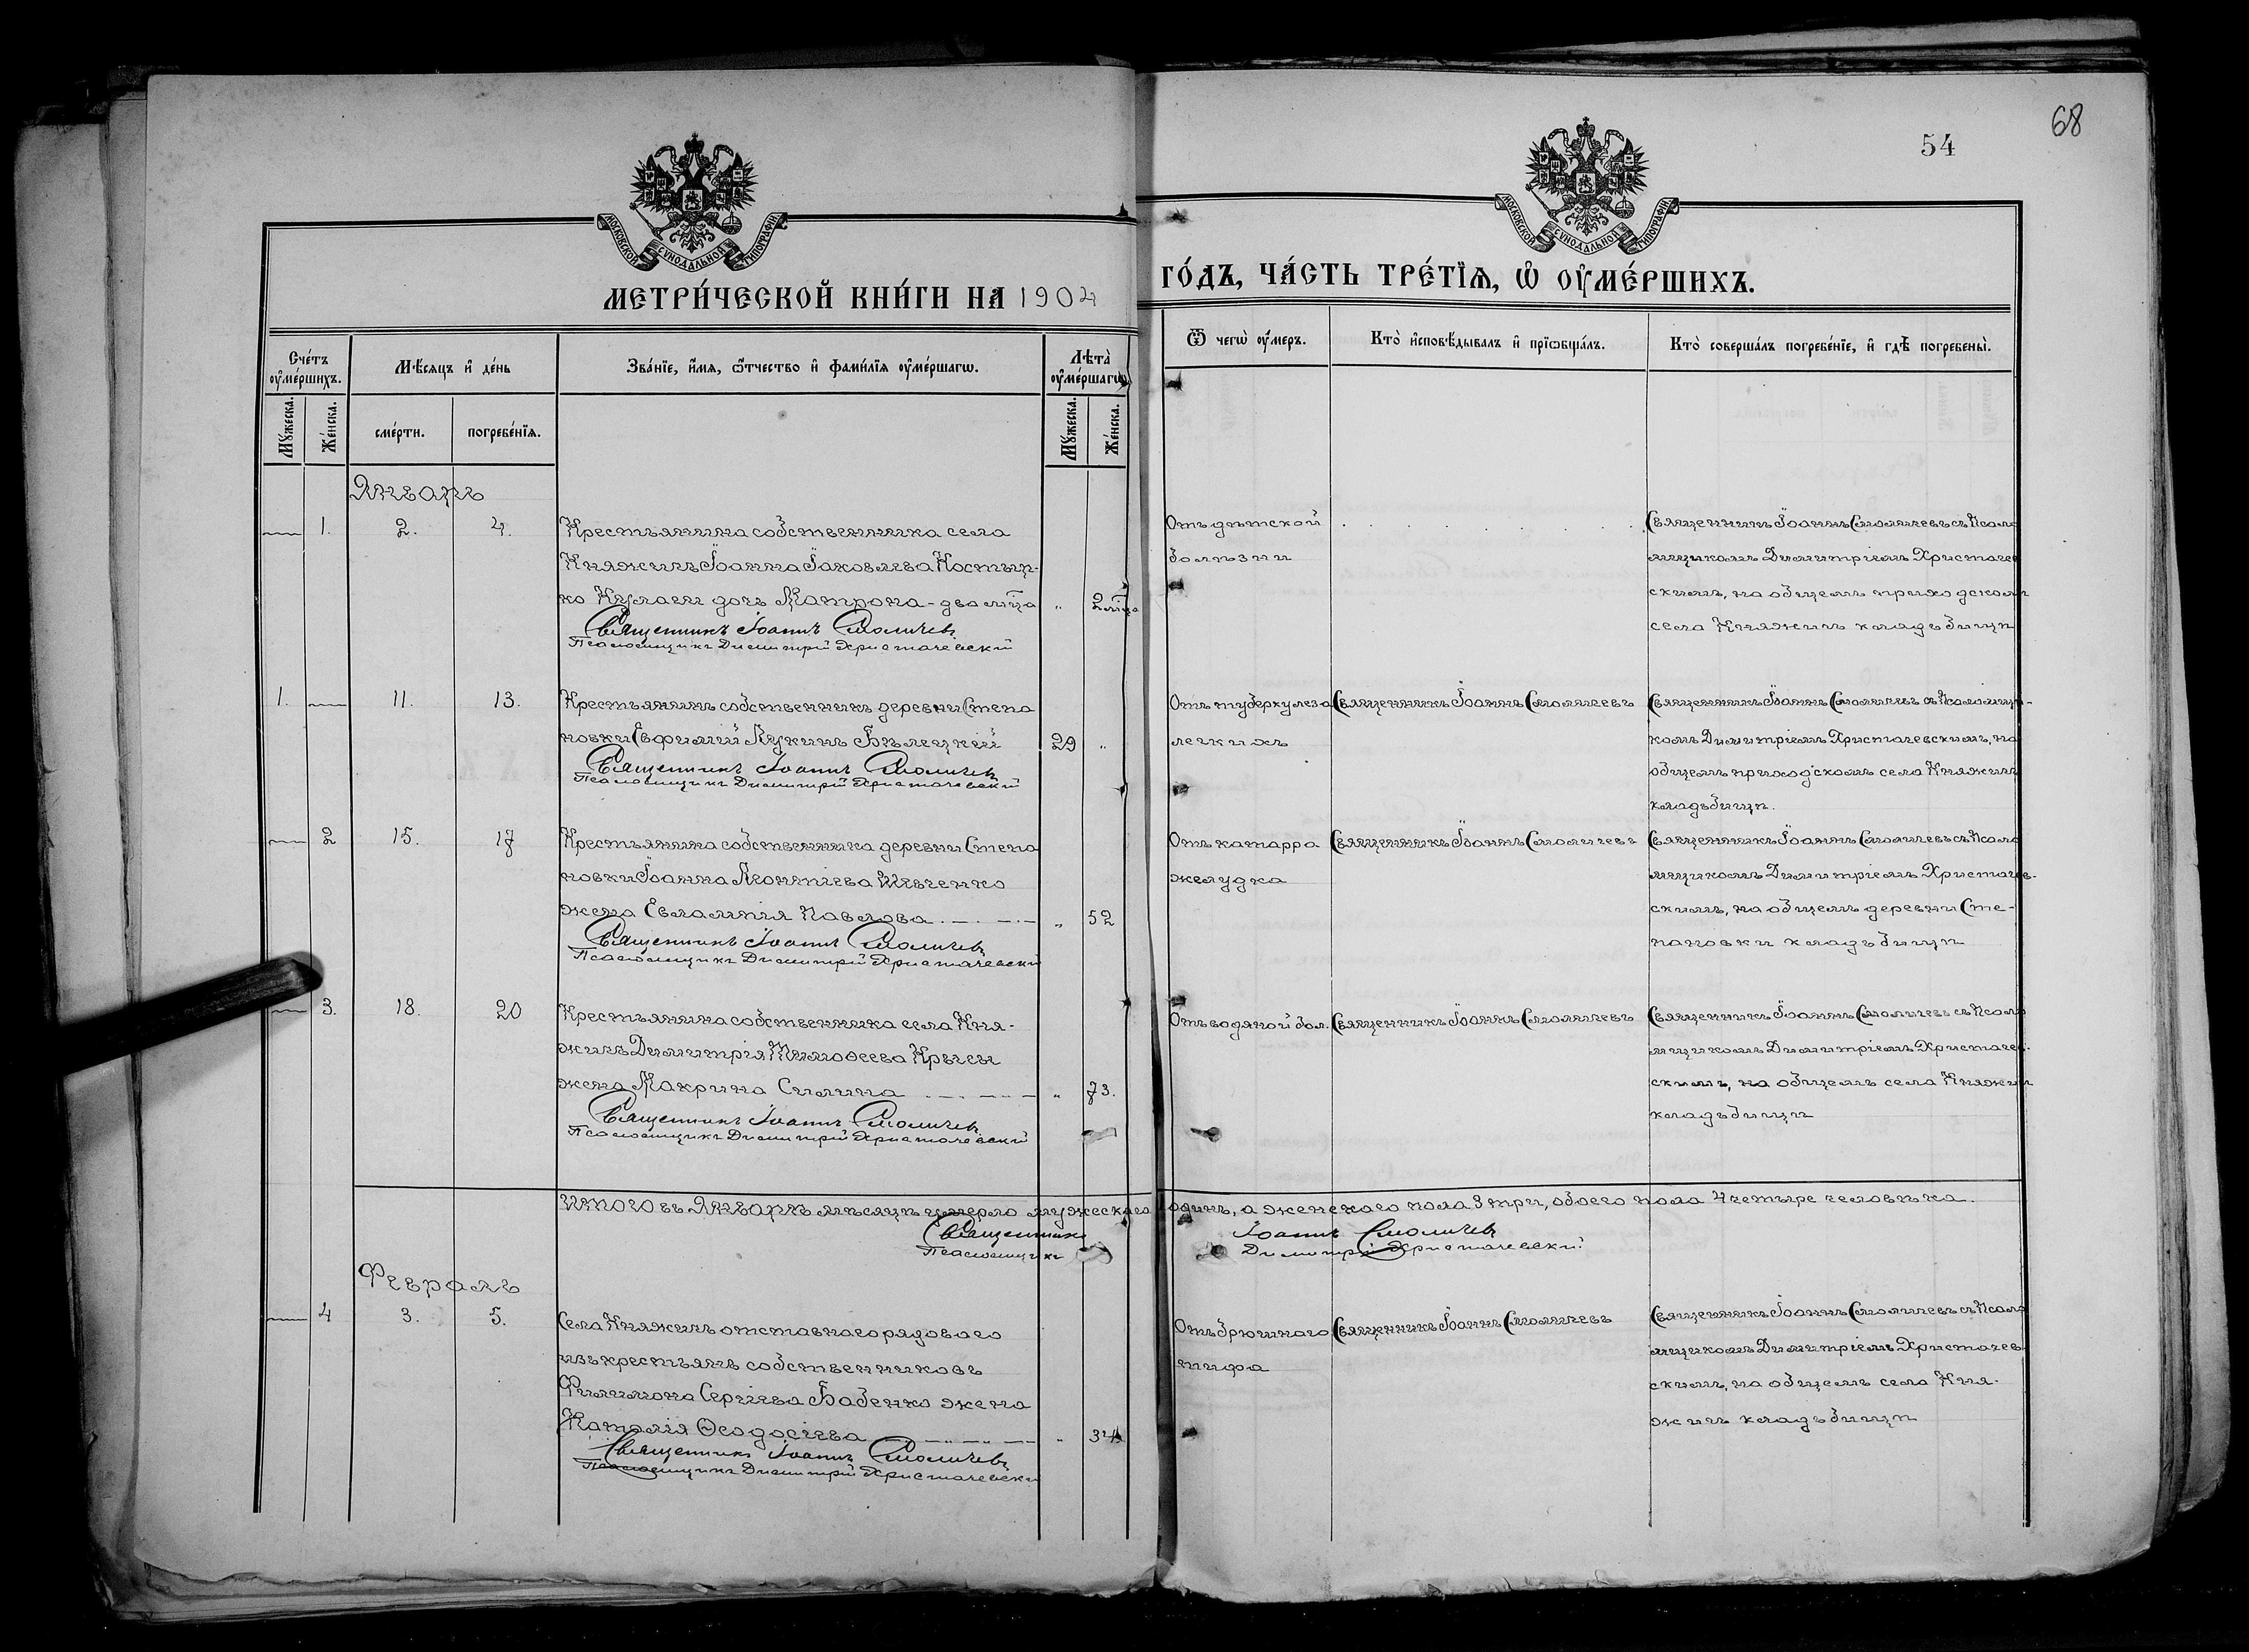 68
54
МОСКОВСКОЙ СѴНОДАЛЬНОЙ ТИПОГРАФІИ
МОСКОВСКОЙ СѴНОДАЛЬНОЙ ТИПОГРАФІИ
МЕТРИ́ЧЕСКОЙ КНИ́ГИ НА 1904
ГО́ДЪ, ЧА́СТЬ ТРЕ́ТЇѦ, Ѽ ОУ҆МЕ́РШИХЪ.
Сче́тъ оу҆ме́ршихъ.
Мѣ́сяцъ и҆ де́нь
Зва́нїе, и҆́мѧ, ѻ҆́тчество и҆ фами́лїѧ оу҆ме́ршагѡ.
Лѣ̀та оу҆ме́ршагѡ
Ѿ чегѡ̀ оу҆́меръ.
Кто̀ и҆сповѣ́дывалъ и҆ прїѡбща́лъ.
Кто̀ соверша́лъ погребе́нїе, и҆ гдѣ̀ погребены̀.
Мꙋ́жеска.
Же́нска.
сме́рти.
погребе́нїѧ.
Мꙋ́жеска.
Же́нска.
Январь
1. 2. 4. Крестьянина собственника села
Княжичъ Іоанна Іаковлева Костыр-
ко Кулаги дочь Матрона - два мѣца " 2 мѣца
Священникъ Іоаннъ Смоличевъ
Псаломщикъ Димитрій Христачевскій
Отъ дѣтской
болѣзни
Священникъ Іоаннъ Смоличевъ съ Псало
мщикомъ Димитріемъ Христачев
скимъ, на общемъ приходскомъ
села Княжичъ кладбищѣ
1. 11. 13. Крестьянинъ собственникъ деревни Степа
новки Евфимій Лукинъ Бѣлецкій 29 "
Священникъ Іоаннъ Смоличевъ
Псаломщикъ Димитрій Христачевскій
Отъ туберкулеза
легкихъ
Священникъ Іоаннъ Смоличевъ
Священникъ Іоаннъ Смоличевъ съ Псаломщи-
комъ Димитріемъ Христачевскимъ, на
общемъ приходскомъ села Княжичъ
кладбищѣ.
2 15. 17 Крестьянина собственника деревни Степа
новки Іоанна Леонтіева Шевченко
жена Евлампія Павлова " 52
Священникъ Іоаннъ Смоличевъ
Псаломщикъ Димитрій Христачевскій
Отъ катарра
желудка
Священникъ Іоаннъ Смоличевъ
Священникъ Іоаннъ Смоличевъ съ Псало
мщикомъ Димитріемъ Христачев-
скимъ, на общемъ деревни Сте-
пановки кладбищѣ
3. 18. 20 Крестьянина собственника села Кня-
жичъ Димитрія Тимоѳеева Крысы
жена Макрина Силина " 73.
Священникъ Іоаннъ Смоличевъ
Псаломщикъ Димитрій Христачевскій
Отъ водяной бол.
Священникъ Іоаннъ Смоличевъ
Священникъ Іоаннъ Смоличевъ съ Псало
мщикомъ Димитріемъ Христачев-
скимъ, на общемъ села Княжич
кладбищѣ
Итого въ Январѣ мѣсяцѣ умерло мужескаго 1 одинъ, а женскаго пола 3 три, обоего пола 4 четыре человѣка.
Священникъ Іоаннъ Смоличевъ
Псаломщикъ Димитрій Христачевскій
Февраль
4 3. 5. Села Княжичъ отставного рядового
изъ крестьянъ собственниковъ
Филимона Сергіева Бабенко жена
Наталія Ѳеодосіева " 34
Священникъ Іоаннъ Смоличевъ
Псаломщикъ Димитрій Христачевскій
Отъ брюшнаго
тифа
Священникъ Іоаннъ Смоличевъ
Священникъ Іоаннъ Смоличевъ съ Псало
мщикомъ Димитріемъ Христачев
скимъ, на общемъ села Кня-
жичъ кладбищѣ